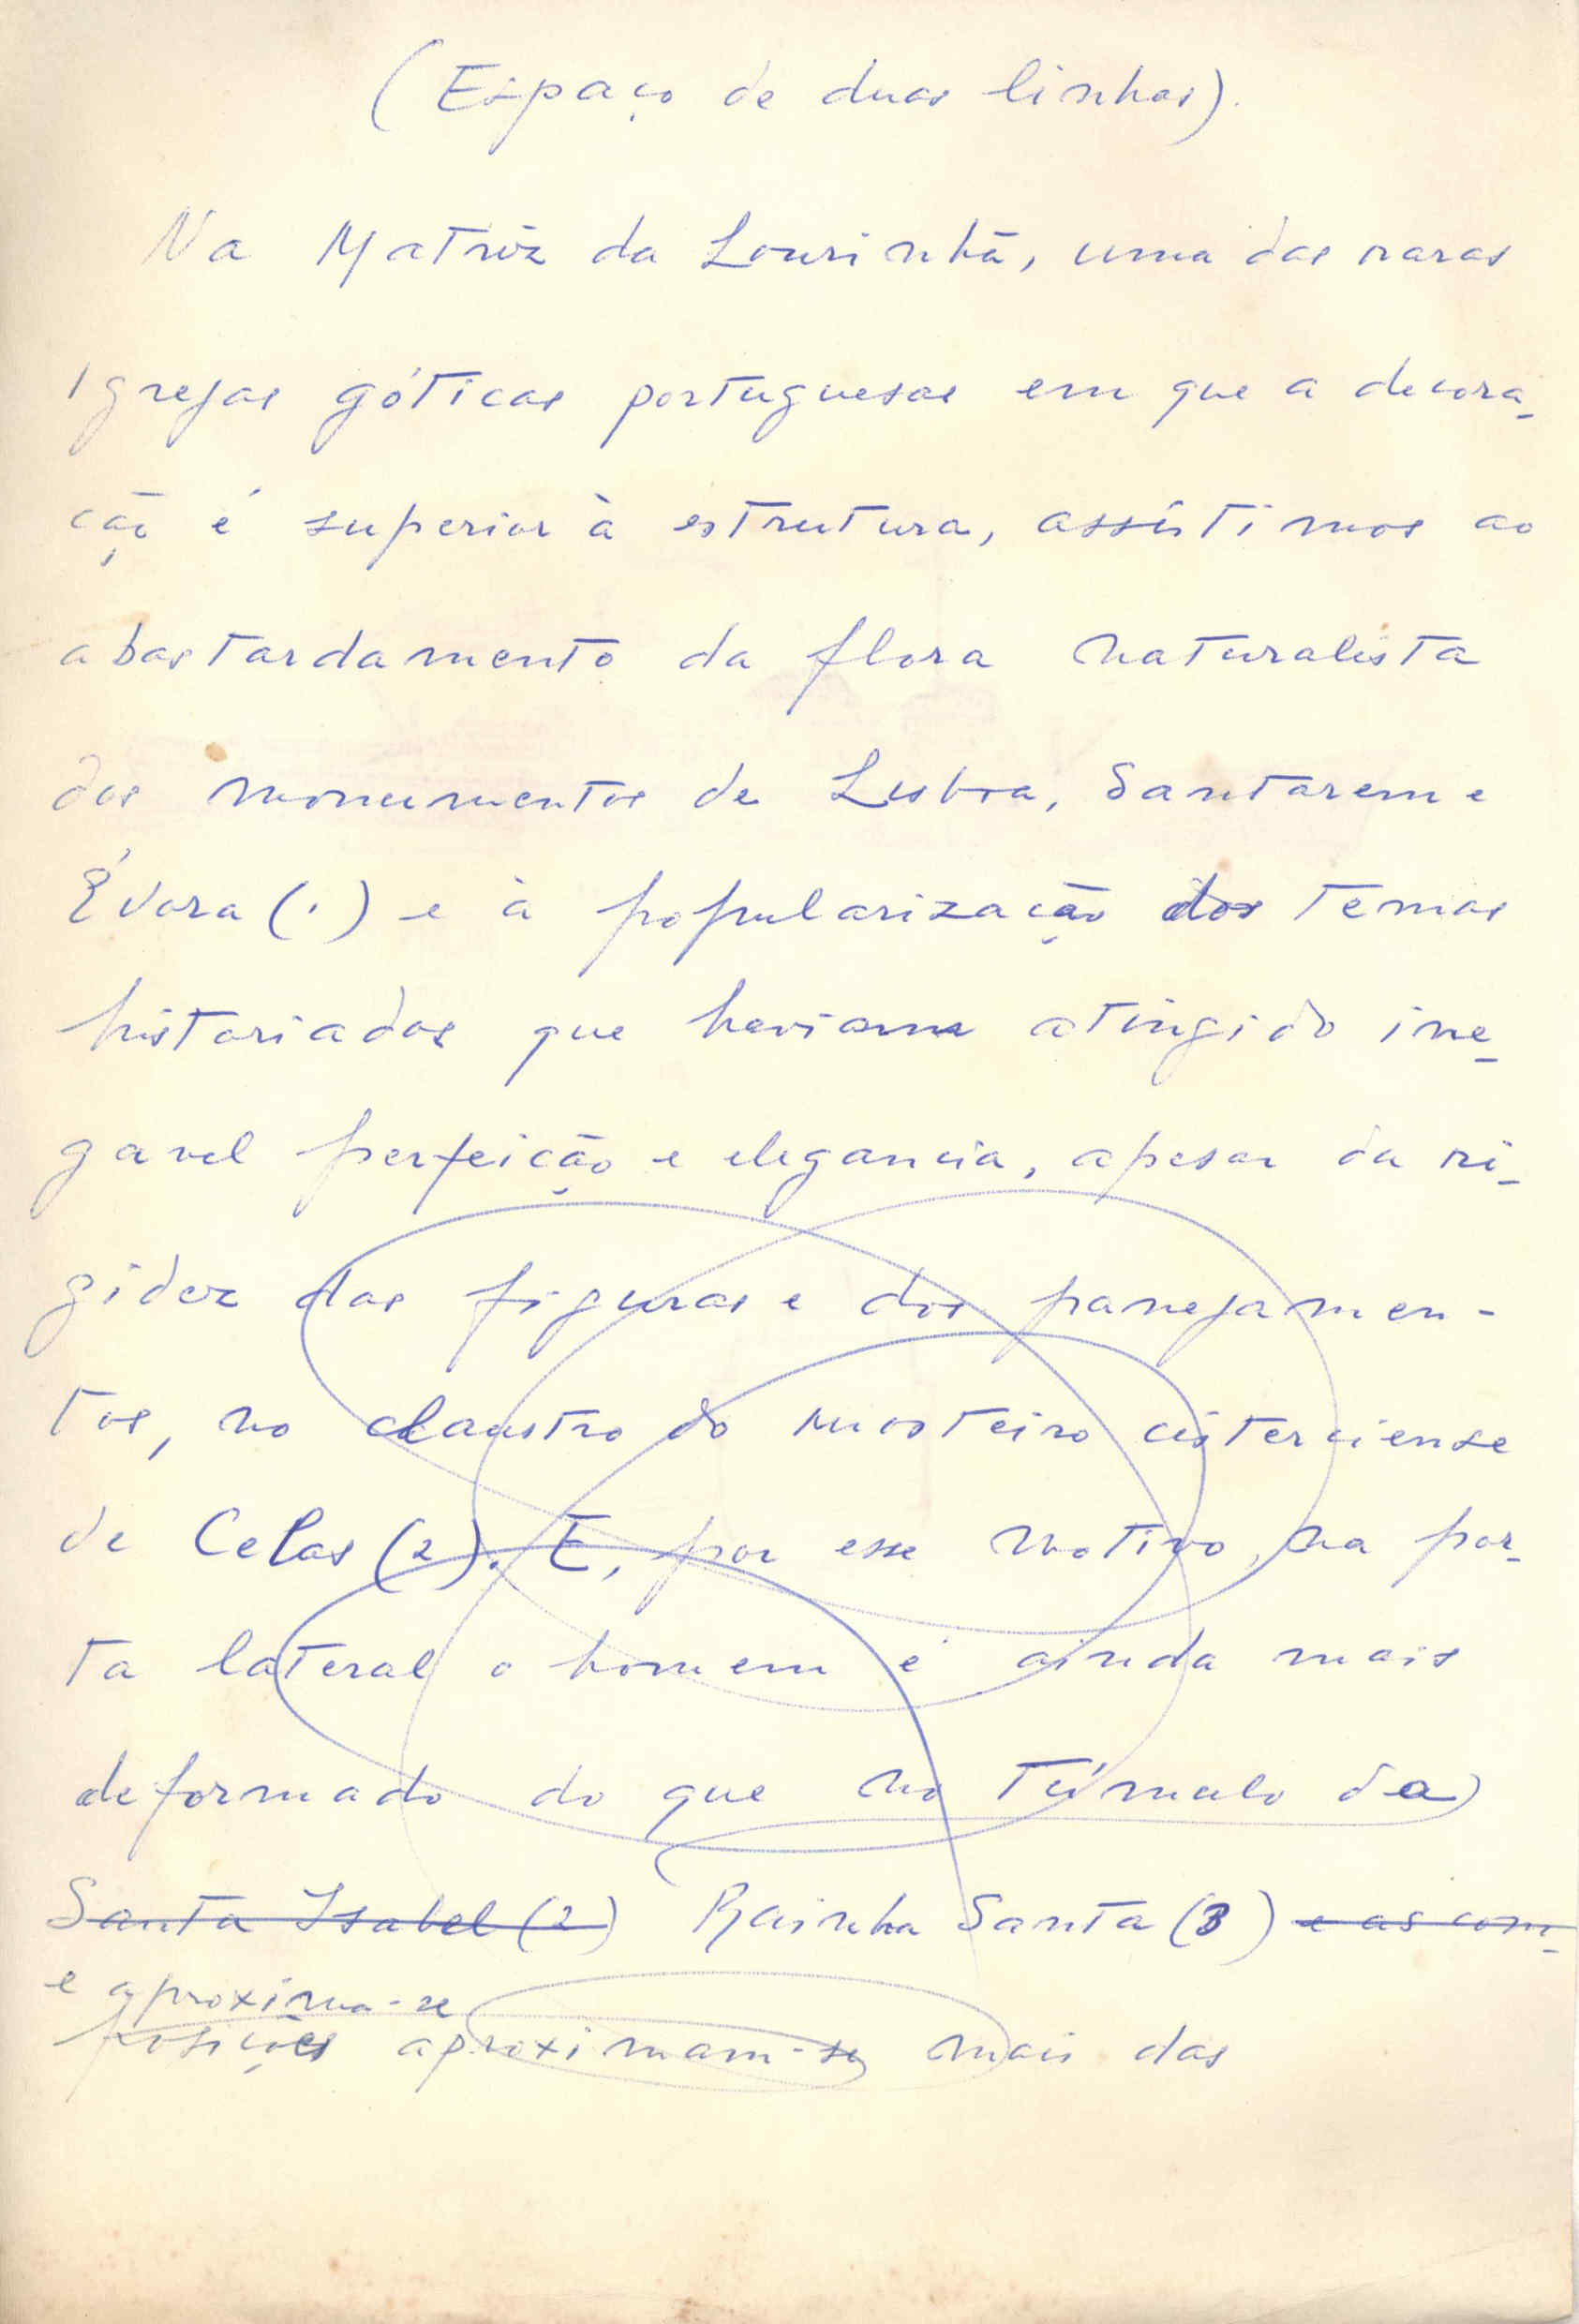 (Espaço de duas linhas).
Na Matriz da Lourinhã, uma das raras
Igrejas góticas portuguesas em que a decora-
ção é superior à estrutura, assistimos ao
abastardamento da flora naturalista
dos monumentos de Lisboa, Santarem e
Évora (1) e à popularização dos temas
historiados que haviam atingido ine-
gavel perfeição e elegancia, apesar da ri-
gidez das figuras e dos panejamen-
tos, no claustro do mosteiro cisterciense
de Celas (2). E, por esse motivo, na por-
ta lateral o homem é ainda mais
deformado do que no túmulo da
Santa Isabel (2) Rainha Santa (3) e as com-
e aproxima-se
posições aproximam-se mais das